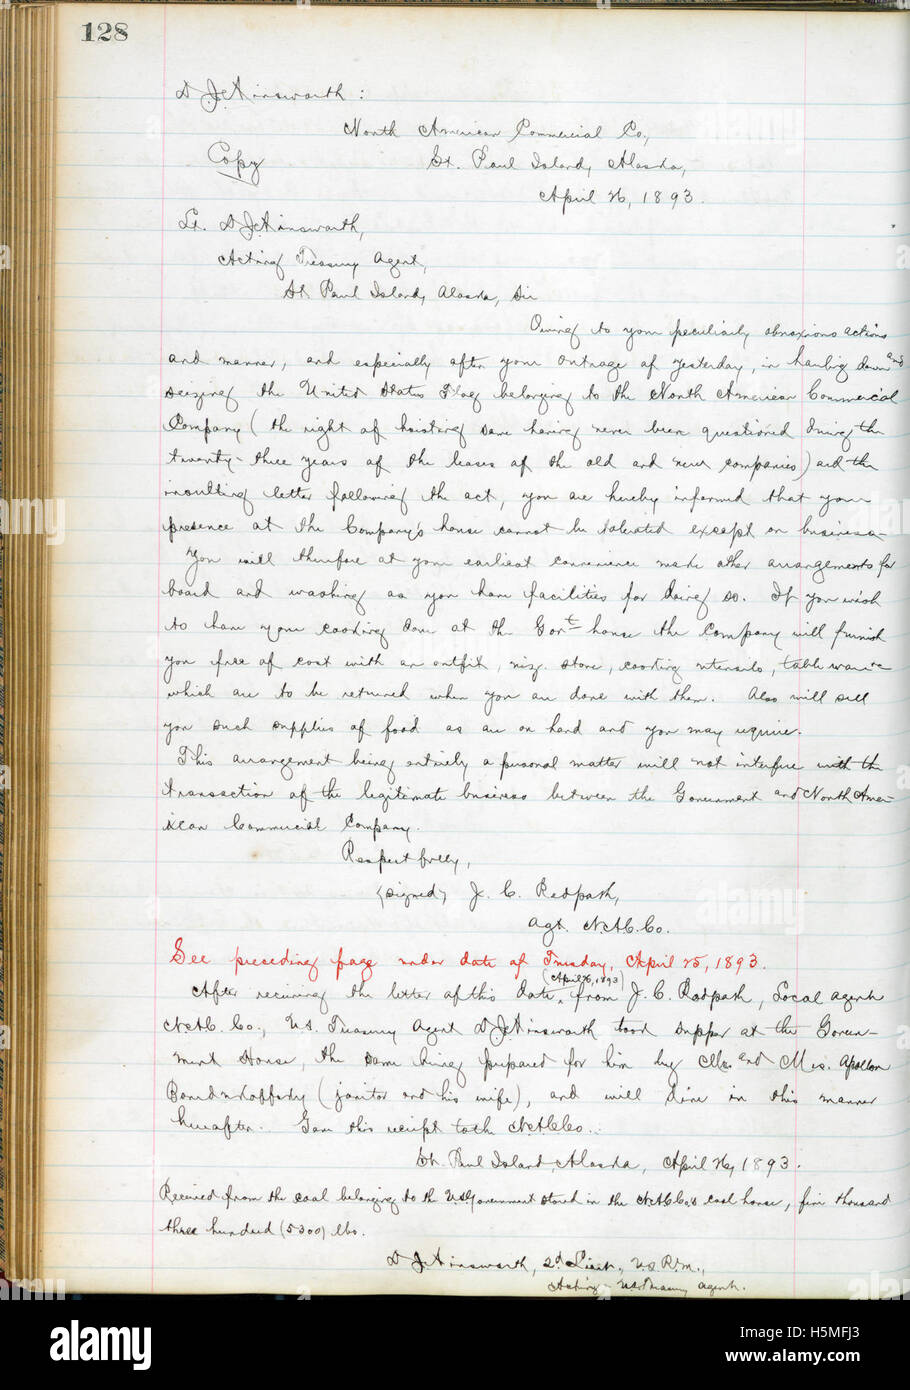 128
D. J. Ainsworth :
North American Commercial Co,
Copy
St. Paul Island, Alaska,
April 26, 1893.
Lt. D. J. Ainsworth,
Acting Treasury Agent,
St Paul Island, Alaska, Sir
Owing to your peculiarly obnoxious actions
and manner, and especially after your outrage of yesterday, in hauling down and
seizing the United States Flag belonging to the North American Commercial
Company (the right of hoisting same having never been questioned during the
twenty-three years of the leases of the old and new companies) and the
insulting letter following the act, you are hereby informed that your
presence at the Company's house cannot be tolerated except on business-
You will therefore at your earliest convenience make other arrangements for
board and washing as you have facilities for doing so. If you wish
to have your cooking done at the Gov't house the Company will furnish
you free of cost with an outfit, viz. stove, cooking utensils, table ware
which are to be returned when you are done with them. Also will sell
you such supplies of food as are on hand and you may require.
This arrangement being entirely a personal matter will not interfere with the
transaction of the legitimate business between the Government and North Amer-
ican Commercial Company.
Respectfully,
(signed) J. C. Redpath,
Agt. N.A.C.Co.
See preceding page under date of Tuesday, April 25, 1893.
(April 26, 1893)
After receiving the letter of this date, from J. C. Redpath, Local agent
N.A.C. Co., U.S. Treasury Agent D. J. Ainsworth took supper at the Govern-
ment House, the same being prepared for him by Mr. and Mrs. Apollon
Bourdukofsky (janitor and his wife), and will dine in this manner
hereafter. Gave this receipt to the N.A.C.Co.:
St. Paul Island, Alaska, April 26, 1893.
Received from the coal belonging to the U.S. Government stored in the N.A.C.Co.s coal house, five thousand
three hundred (5300) lbs.
D. J. Ainsworth, 2d Lieut., U.S.R.M.,
Acting U.S. Treasury Agent.
alamy
alamy
alamy
alamy
alamy
Image ID: H5MFJ3
www.alamy.com